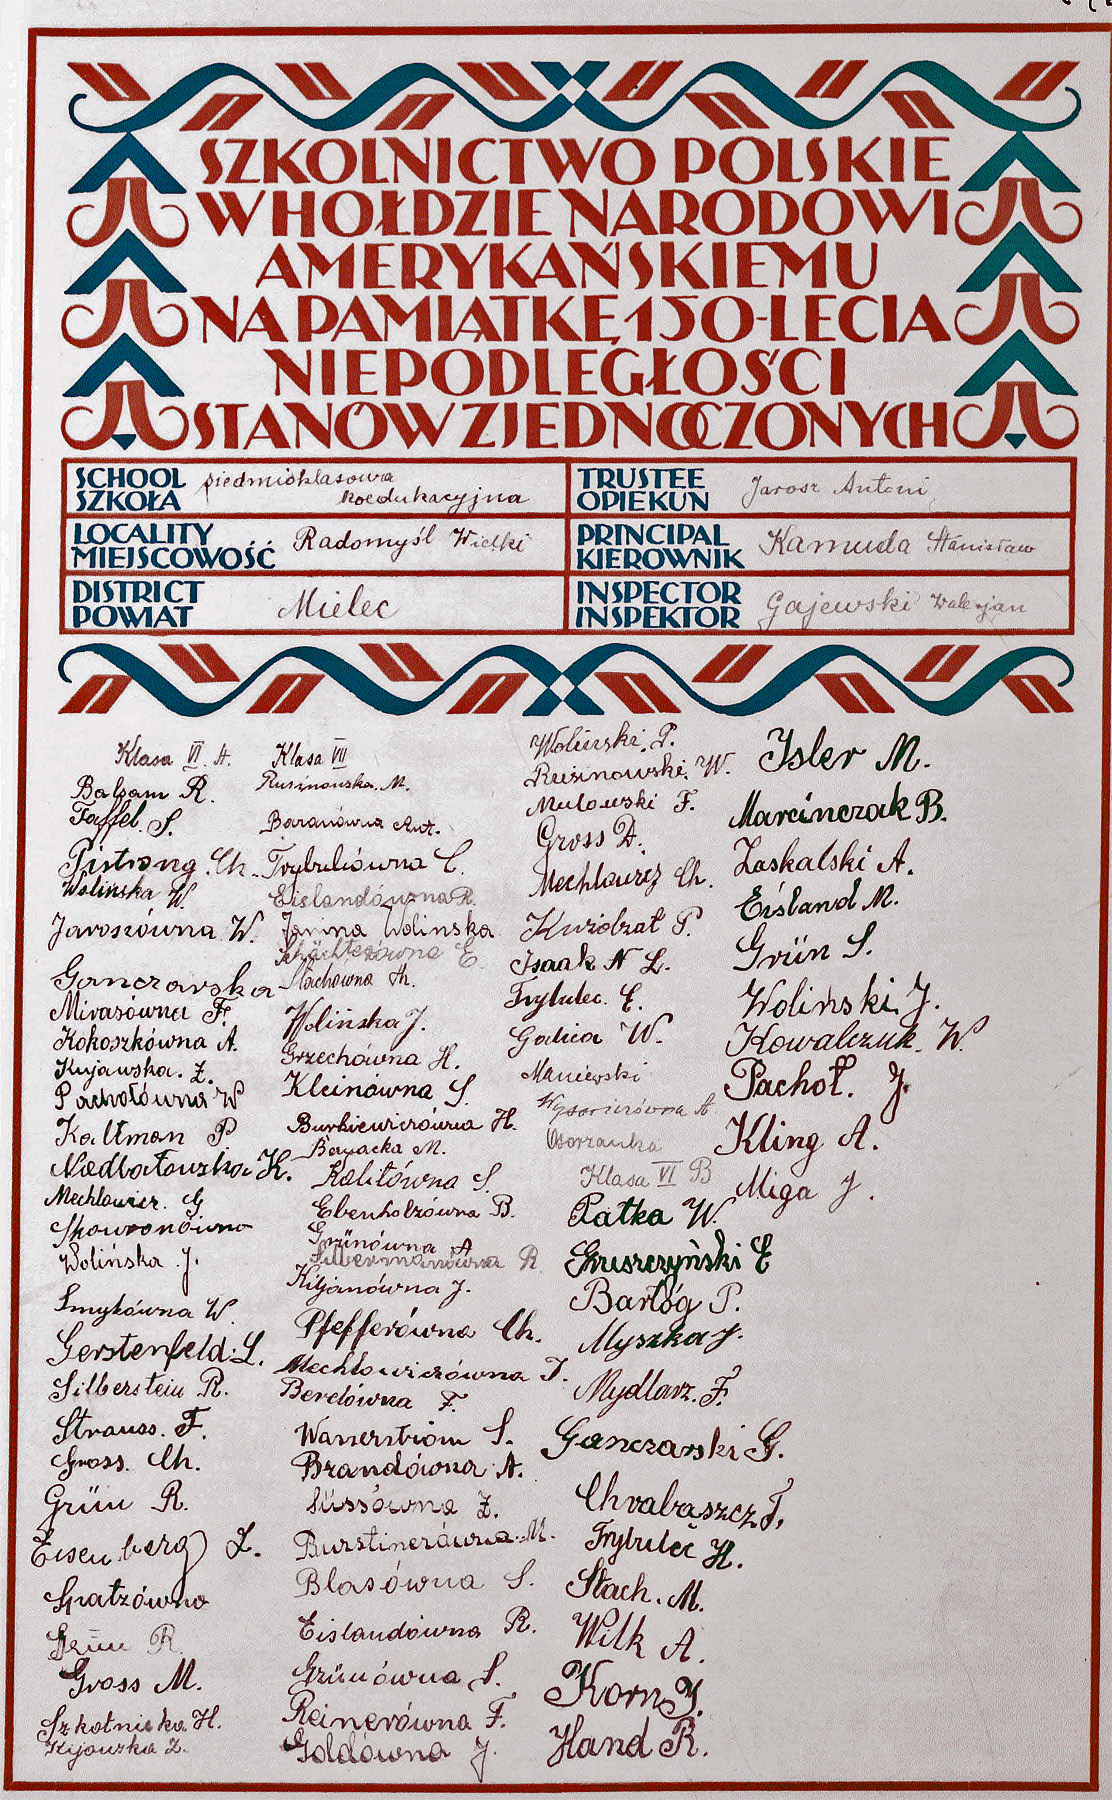 SZKOLNICTWO POLSKIE
W HOŁDZIE NARODOWI
AMERYKAŃSKIEMU
NA PAMIĄTKĘ 150-LECIA
NIEPODLEGŁOŚCI
STANÓW ZJEDNOCZONYCH
SCHOOL
SZKOŁA
siedmioklasowa
koedukacyjna
TRUSTEE
OPIEKUN
Jarosz Antoni
LOCALITY
MIEJSCOWOŚĆ
Radomyśl Wielki
PRINCIPAL
KIEROWNIK
Kamuda Stanisław
DISTRICT
POWIAT
Mielec
INSPECTOR
INSPEKTOR
Gajewski Walerjan
Klasa VI. A.
Balsam R.
Taffel. S.
Pistrong. Ch.
Wolińska W.
Jaroszówna W.
Ganczarska
Mirasówna F.
Kokoszkówna A.
Kujawska. Z.
Pachołówna W
Kaltman P
Niedbałowska K.
Mechlowicz. G
Skowronówna
Wolińska J.
Smykówna W.
Gerstenfeld. L.
Silberstein R.
Strauss. F.
Gross. Ch.
Grün R.
Eisenberg L.
Spatzówna
Grün R.
Gross M.
Szkotnicka H.
Kijowska Z.
Klasa VII
Rusinowska. M.
Baranówna Ant.
Trybulówna C.
Eislandówna R.
Janina Wolinska
Schächterówna E.
Stachówna Th.
Wolińska J.
Grzechówna H.
Kleinówna S.
Burkiewiczówna H.
Barnacka M.
Kalitówna S.
Ebenholzówna B.
Grünówna A
Silbermanówna R.
Kiljanówna J.
Pfefferówna Ch.
Mechlowiczówna T.
Berelówna F.
Wasserstrom S.
Brandówna A.
Süssówna Z.
Burstinerówna M.
Blasówna S.
Eislandówna R.
Grünówna S.
Reinerówna F.
Goldówna J.
Woliński. P.
Rusinowski. W.
Mulowski F.
Gross D.
Mechlowicz Ch.
Kuzdrzał P.
Isaak N L.
Trybulec. E.
Galica W.
Maniewski
Wysocirówna A.
Klasa VI B
Patka W.
Gruszczyński E
Bartóg P.
Myszka J.
Mydlarz. F.
Ganczarski G.
Chrabąszcz T.
Trybulec H.
Stach. M.
Wilk A.
Korn J.
Hand R.
Isler M.
Marcinczak B.
Zaskalski A.
Eisland M.
Grün S.
Woliński J.
Kowalczuk. W.
Pachoł. J.
Kling A.
Miga J.